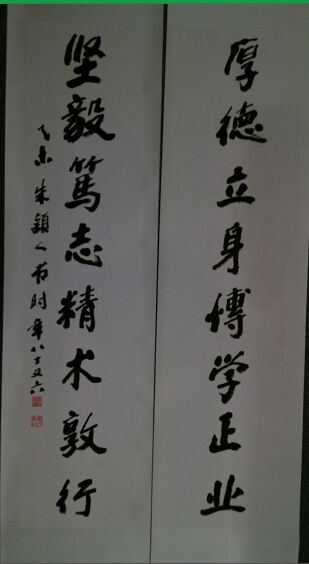 厚德立身博学正业
坚毅笃志精术敦行
朱颖人 时年八十又六